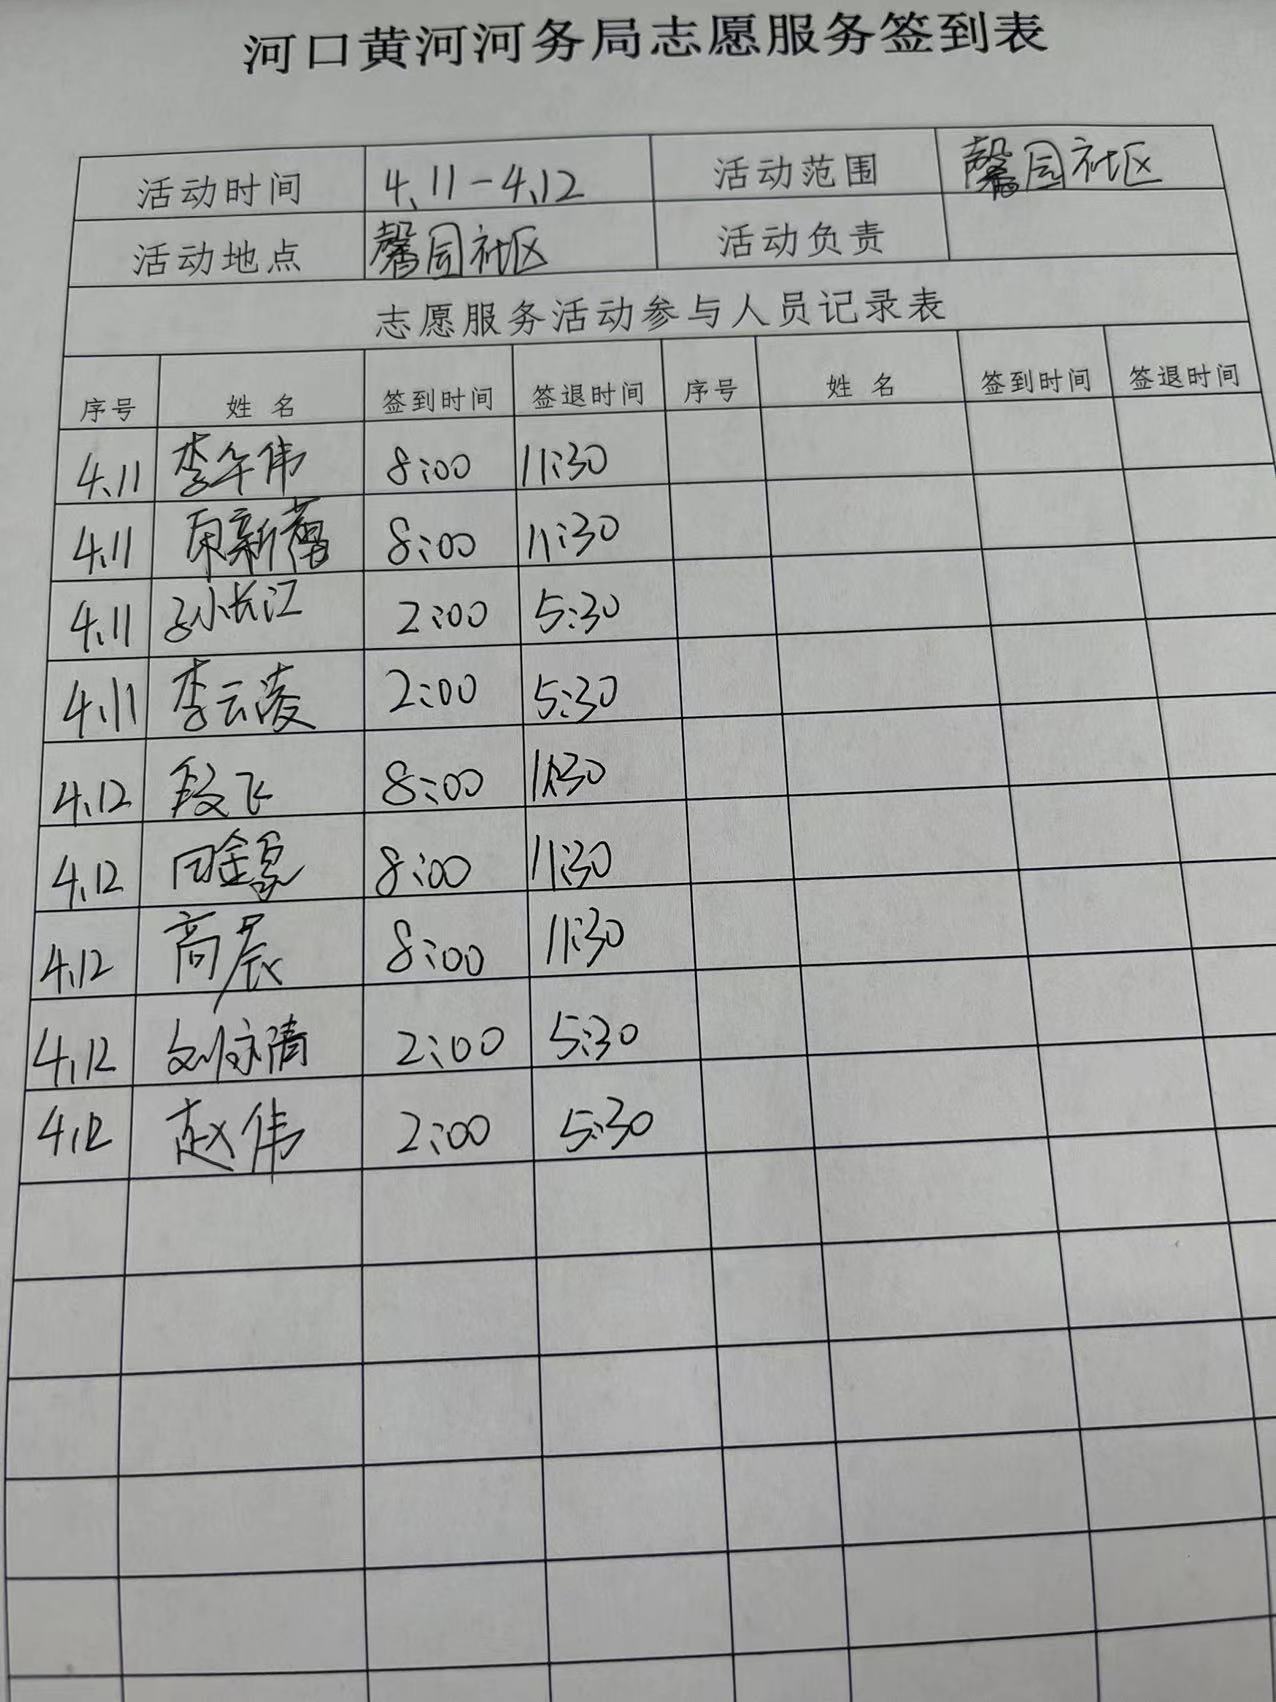 河口黄河河务局志愿服务签到表
活动时间 4.11-4.12 活动范围 馨园社区
活动地点 馨园社区 活动负责
志愿服务活动参与人员记录表
序号 姓名 签到时间 签退时间 序号 姓名 签到时间 签退时间
4.11 李伟 8:00 11:30
4.11 新 8:00 11:30
4.11 孙长江 2:00 5:30
4.11 李云凌 2:00 5:30
4.12 段飞 8:00 11:30
4.12 田金 8:00 11:30
4.12 高辰 8:00 11:30
4.12 刘清 2:00 5:30
4.12 赵伟 2:00 5:30